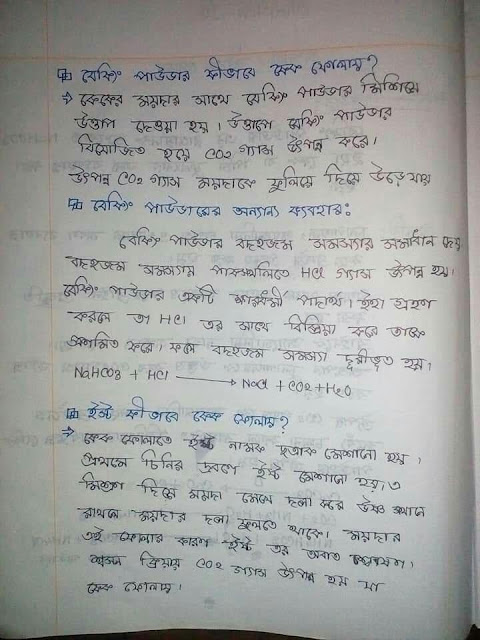 বেকিং পাউডার কীভাবে কেক ফোলায়?
→ কেকের ময়দার সাথে বেকিং পাউডার মিশিয়ে
উত্তাপ দেওয়া হয়। উত্তাপে বেকিং পাউডার
বিয়োজিত হয়ে CO2 গ্যাস উৎপন্ন করে।
উৎপন্ন CO2 গ্যাস ময়দাকে ফুলিয়ে দিয়ে উড়ে যায়
বেকিং পাউডারের অন্যান্য ব্যবহার:
বেকিং পাউডার বদহজম সমস্যার সমাধান দেয়
বদহজম সমস্যায় পাকস্থলিতে HCl গ্যাস উৎপন্ন হয়।
বেকিং পাউডার একটি ক্ষারধর্মী পদার্থ। ইহা গ্রহণ
করলে তা HCl এর সাথে বিক্রিয়া করে তাকে
প্রশমিত করে। ফলে বদহজম সমস্যা দূরীভূত হয়।
NaHCO3 + HCl → NaCl + CO2 + H2O
ইস্ট কীভাবে কেক ফোলায়?
→ কেক ফোলাতে ইস্ট নামক ছত্রাক মেশানো হয়।
প্রথমে চিনির দ্রবণে ইস্ট মেশানো হয়, ঐ
মিশ্রণ দিয়ে ময়দা মেখে দলা করে উষ্ণ স্থানে
রাখলে ময়দার দলা ফুলতে থাকে। ময়দার
এই ফোলার কারণ ইস্ট এর অবাত শ্বসন।
শ্বসন ক্রিয়ায় CO2 গ্যাস উৎপন্ন হয় যা
কেক ফোলায়।